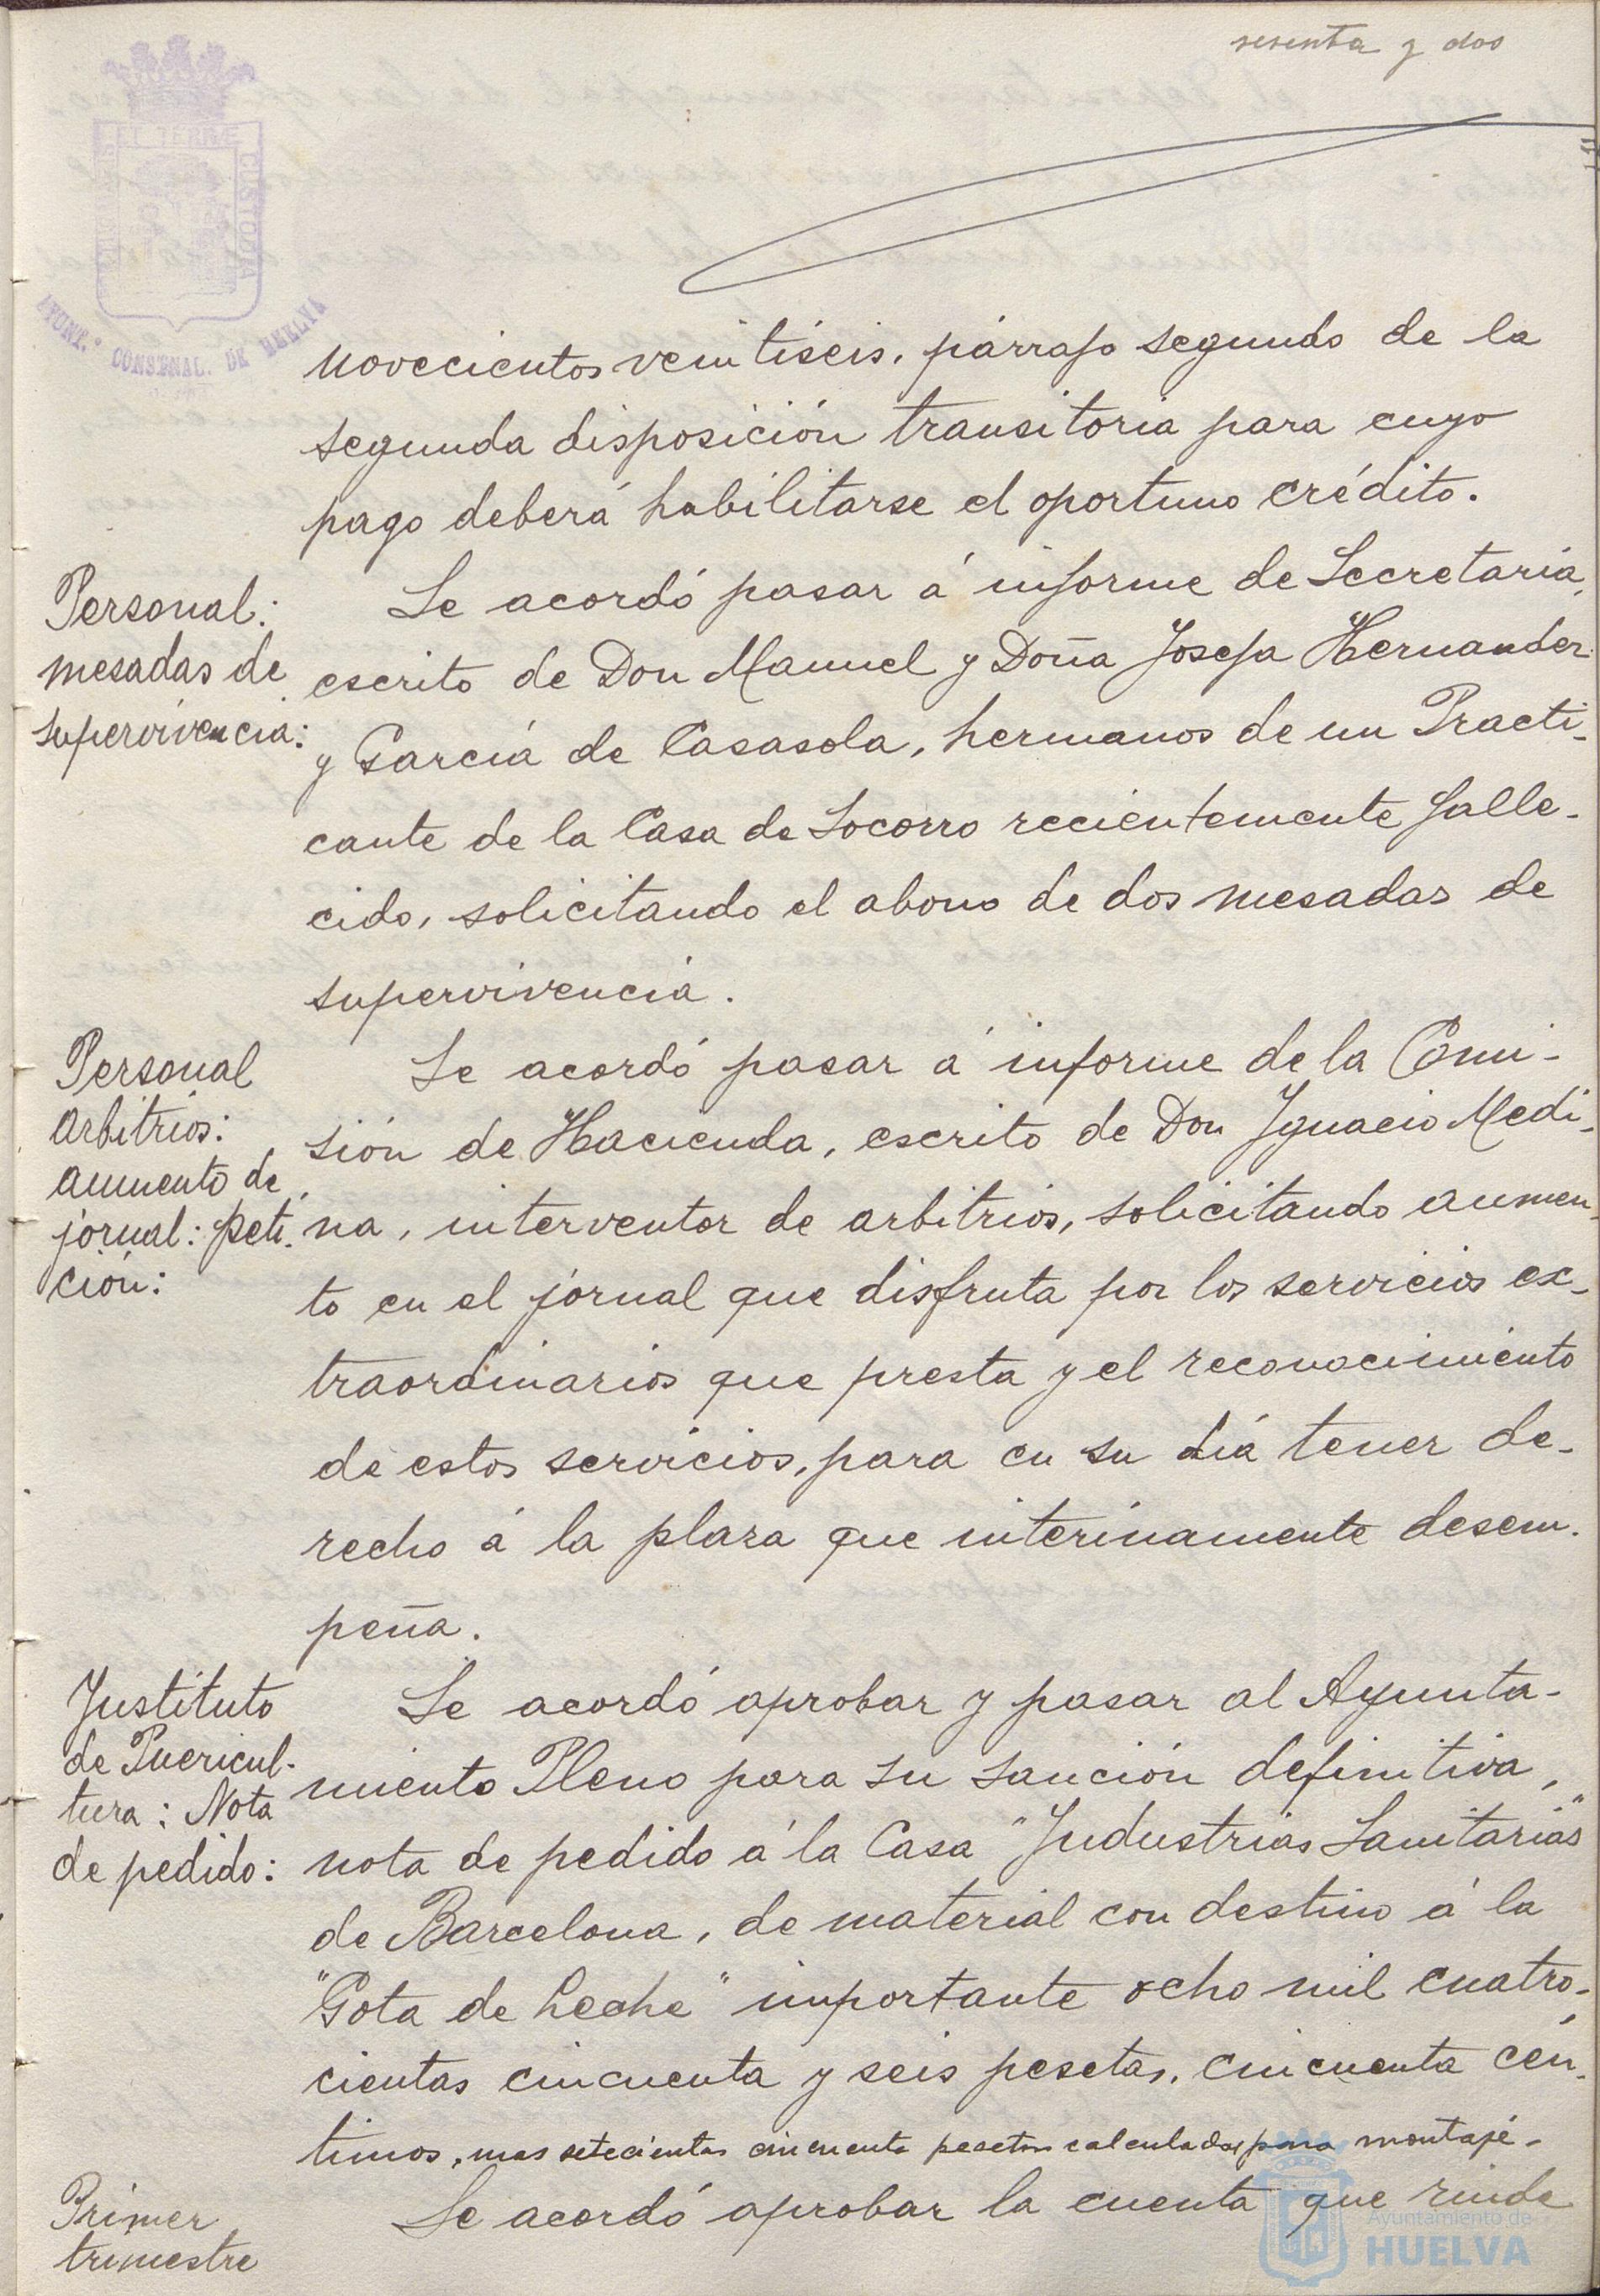 sesenta y dos
PORTUS MARIS ET TERRÆ CUSTODIA
AYUNT.º CONSTNAL. DE HUELVA
novecientos veintiséis, párrafo segundo de la
segunda disposición transitoria para cuyo
pago deberá habilitarse el oportuno crédito.
Personal:
mesadas de
supervivencia:
Se acordó pasar á informe de Secretaría,
escrito de Don Manuel y Doña Josefa Hernandez
y García de Casasola, hermanos de un Practi-
cante de la Casa de Socorro recientemente falle-
cido, solicitando el abono de dos mesadas de
supervivencia.
Personal
Arbitrios:
aumento de
jornal: peti-
ción:
Se acordó pasar á informe de la Comi-
sión de Hacienda, escrito de Don Ignacio Medi-
na, interventor de arbitrios, solicitando aumen-
to en el jornal que disfruta por los servicios ex-
traordinarios que presta y el reconocimiento
de estos servicios, para en su día tener de-
recho á la plaza que interinamente desem-
peña.
Instituto
de Puericul-
tura: Nota
de pedido:
Se acordó aprobar y pasar al Ayunta-
miento Pleno para su sanción definitiva,
nota de pedido á la Casa "Industrias Sanitarias"
de Barcelona, de material con destino á la
"Gota de Leche" importante ocho mil cuatro-
cientas cincuenta y seis pesetas, cincuenta cén-
timos, mas setecientas cincuenta pesetas calculadas para montaje.
Primer
trimestre
Se acordó aprobar la cuenta que rinde
Ayuntamiento de
HUELVA